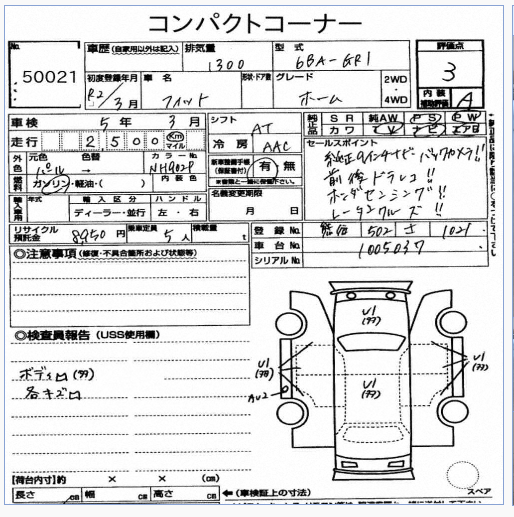 コンパクトコーナー
No. 50021
車歴 (自家用以外は記入) 排気量 1300 型式 6BA-GR1
初度登録年月 R2/3月 車名 フィット 形状・ドア数 グレード ホーム 2WD ・ 4WD
評価点 3
内装補助評価 A
車検 5年 3月 シフト AT
走行 2500 Km マイル 冷房 AAC
純正品 SR 純AW PS PW
カワ TV ナビ エアB
外色 元色 パール 色替 カラーNo. NH902P
内装色
燃料 ガソリン・軽油・( )
新車整備手帳(保証書付) 有 無
※後日と一緒に保管下さい
セールスポイント
純正9インチナビ・バックカメラ!!
前後ドラレコ!!
ホンダセンシング!!
レーダークルーズ!!
輸入車用 年式 輸入区分 ハンドル
ディーラー・並行 左・右
名義変更期限
月 日
リサイクル預託金 8950円 乗車定員 5人 積載量 t
登録No. 502 さ 1021
車台No. 1005037
シリアルNo.
◎注意事項 (修復・不具合箇所および状態等)
◎検査員報告 (USS使用欄)
ボディロ(タタ)
各キズロ
U1 (タタ)
U1 (タタ)
U1 (タタ)
U1 (タタ)
AU2
【荷台内寸】約 × × (cm)
長さ cm 幅 cm 高さ cm ←(車検証上の寸法)
スペア